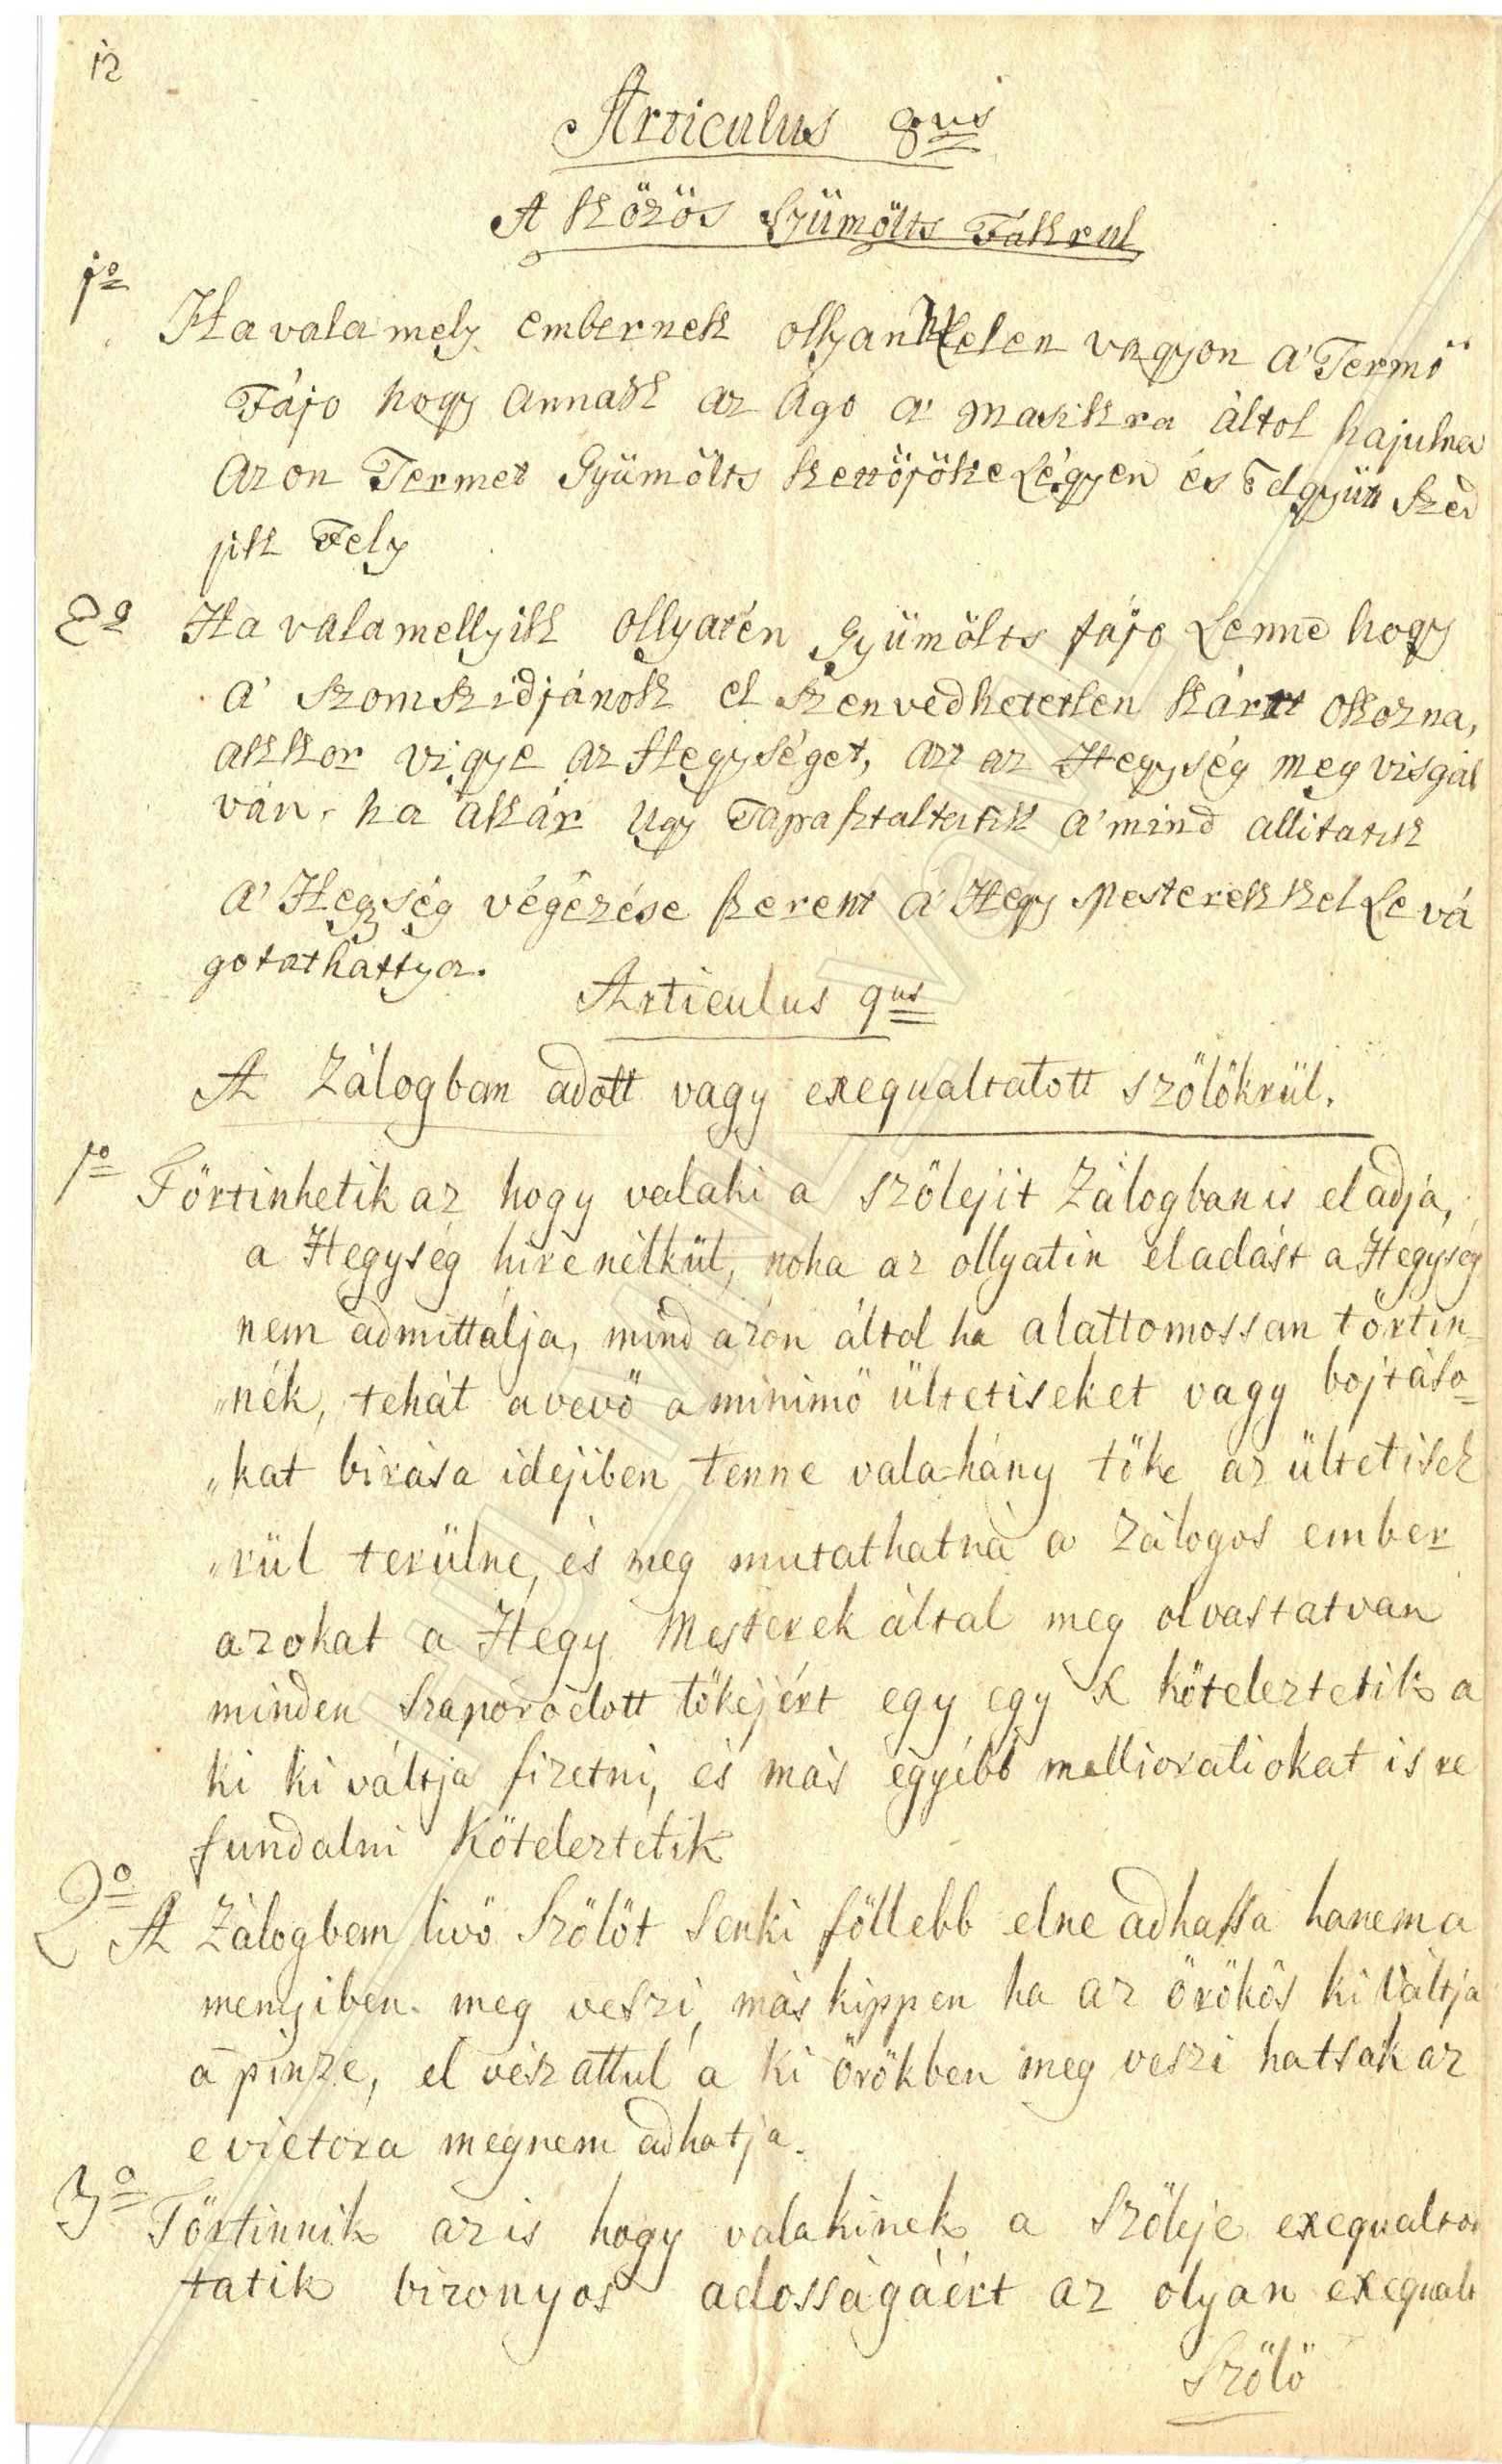 12
Articulus 8us
A Közös Gyümölts Fákrul
1o
Ha valamely embernek ollyan helen vagyon a' Termö
Fájo hogy annak az Ago a' masikra áltol hajulna
Azon Termet Gyümölts kettöjöke Légyen és Edgyüt szed
jik Fely
2o Ha valamellyik ollyatén Gyümölts fájo Lenne hogy
a' szomszidjánok el szenvedhetetlen kárt okozna,
akkor vigye az Hegységet, azt az Hegység meg visgál
ván, ha akár ugy Tapasztaltatik a' mind allitatik
a' Hegység végézése szerent a' Hegy Mesterekkel Le vá
gotathattya.
Articulus 9us
A Zálogban adott vagy exequaltatott szölökrül.
1o Törtinhetik az hogy valaki a szölejit Zálogban is eladja,
a Hegység hire nélkül, noha az ollyatin eladást a Hegység
nem admittálja, mind azon áltol ha alattomossan törtin-
„nék, tehát a vevö a minimö ültetiseket vagy bojtáso=
„kat birása idejiben tenne vala=hány töke az ültetisek
„rül terülne, és meg mutathatná a zálogos ember
azokat a Hegy Mesterek által meg olvastatván
minden szaporodott tökejért egy egy x köteleztetik a
ki ki váltja fizetni, és más egyébb mellioratiokat is re
fundalni Köteleztetik
2o A Zálogbem livö Szölöt Senki föllebb elne adhassa hanem a
menyiben meg veszi, más kippen ha az örökös ki váltja
a pinze, el vész attul a ki örökben meg veszi hatsak az
evictora megnem adhatja.
3o Törtinnik az is hogy valakinek a Szöleje exequalta
tatik bizonyos adosságáért az olyan exequalt
Szölö